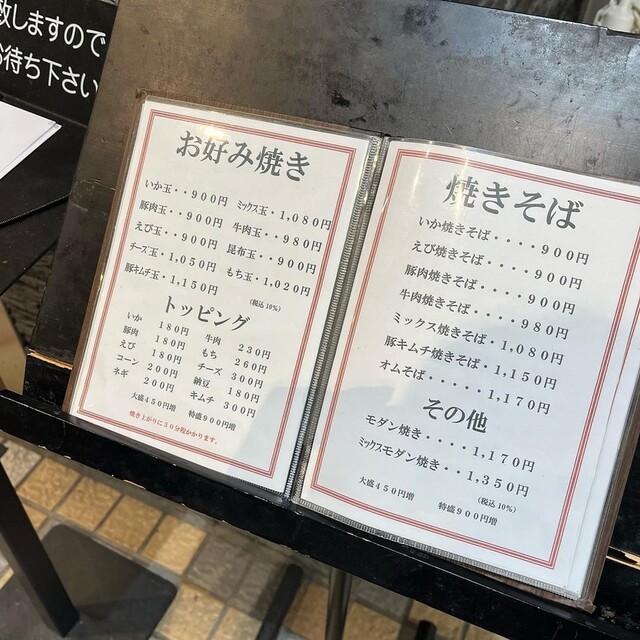 致しますので
お待ち下さい
お好み焼き
いか玉・・９００円　ミックス玉・１,０８０円
豚肉玉・・９００円　牛肉玉・・９８０円
えび玉・・９００円　昆布玉・・９００円
チーズ玉・１,０５０円　もち玉・１,０２０円
豚キムチ玉・１,１５０円
(税込10%)
トッピング
いか　１８０円　牛肉　２３０円
豚肉　１８０円　もち　２６０円
えび　１８０円　チーズ　３００円
コーン　２００円　納豆　１８０円
ネギ　２００円　キムチ　３００円
大盛４５０円増　特盛９００円増
焼き上がりに３０分程かかります。
焼きそば
いか焼きそば・・・・９００円
えび焼きそば・・・・９００円
豚肉焼きそば・・・・９００円
牛肉焼きそば・・・・９８０円
ミックス焼きそば・１,０８０円
豚キムチ焼きそば・１,１５０円
オムそば・・・・・１,１７０円
その他
モダン焼き・・・・１,１７０円
ミックスモダン焼き・・１,３５０円
(税込10%)
大盛４５０円増　特盛９００円増